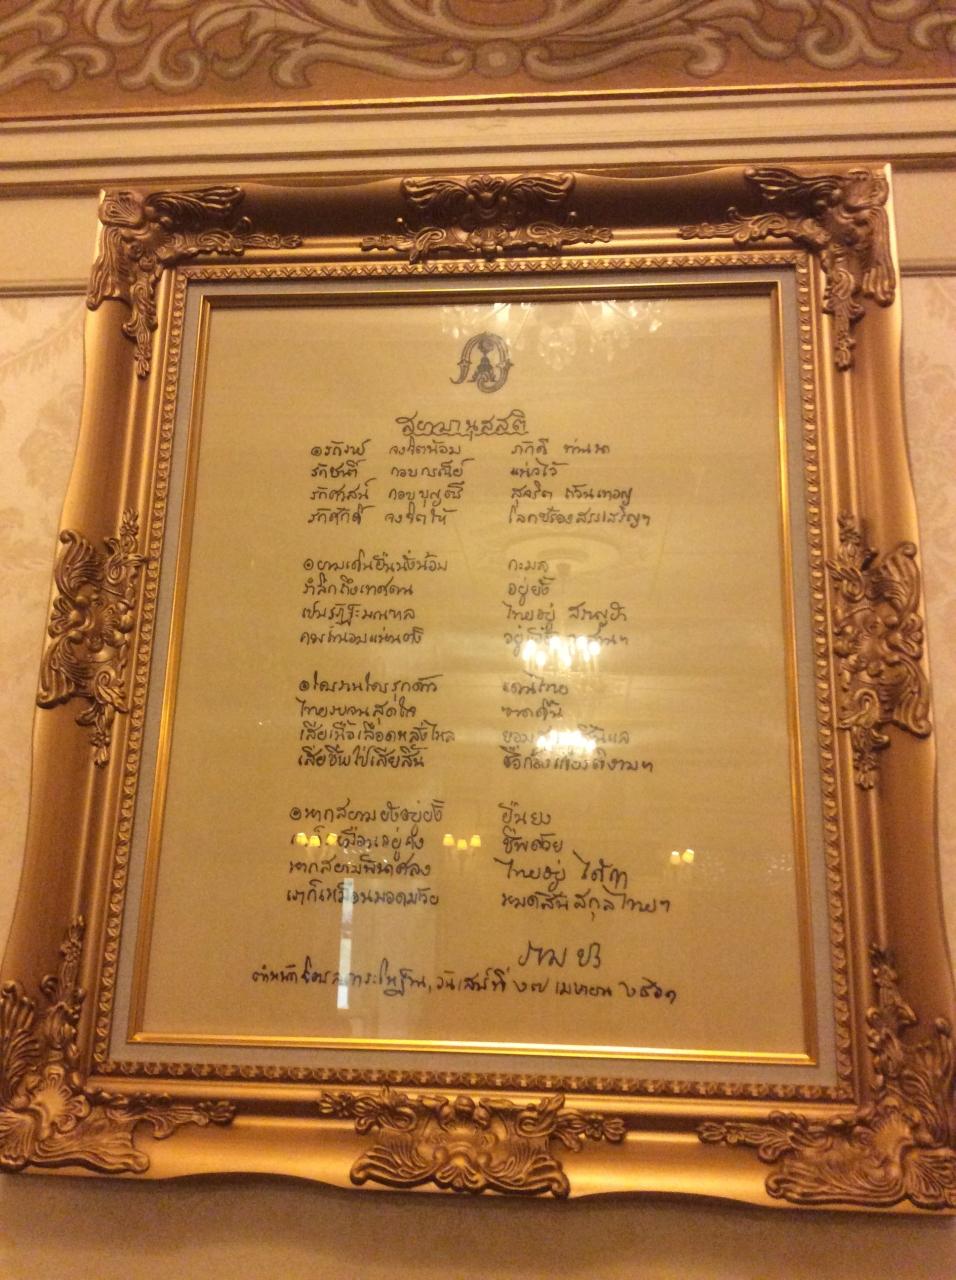 สยามานุสสติ
๏ รักราช จงจิตน้อม ภักดี ท่านนา
รักชาติ กอบกรณีย์ แน่วไว้
รักศาสน์ กอบบุญตรี สุจริต ถ้วนเทอญ
รักศักดิ์ จงจิตให้ โลกซร้องสรรเสริญฯ
๏ ยามเดินยืนนั่งน้อม กะมล
รำลึกถึงเทศตน อยู่ยั้ง
เป็นรัฏฐะมณฑล ไทยอยู่ สราญฮา
ควรถนอมแน่นตั้ง อยู่
๏ ใครรานใครรุกด้าว แดนไทย
ไทยรบจนสุดใจ ขาดดิ้น
เสียเนื้อเลือดหลั่งไหล ยอมสละสิ้นแล
เสียชีพไป่เสียสิ้น ชื่อก้องเกียรติงามฯ
๏ หากสยามยังอยู่ยั้ง ยืนยง
เราก็เหมือนอยู่คง ชีพด้วย
หากสยามพินาศลง ไทยอยู่ ได้ฤๅ
เราก็เหมือนมอดม้วย หมดสิ้นสกุลไทยฯ
ราม
ตำหนักจิตรลดาระโหฐาน, วันเสาร์ที่ ๒๗ เมษายน ๒๔๖๑